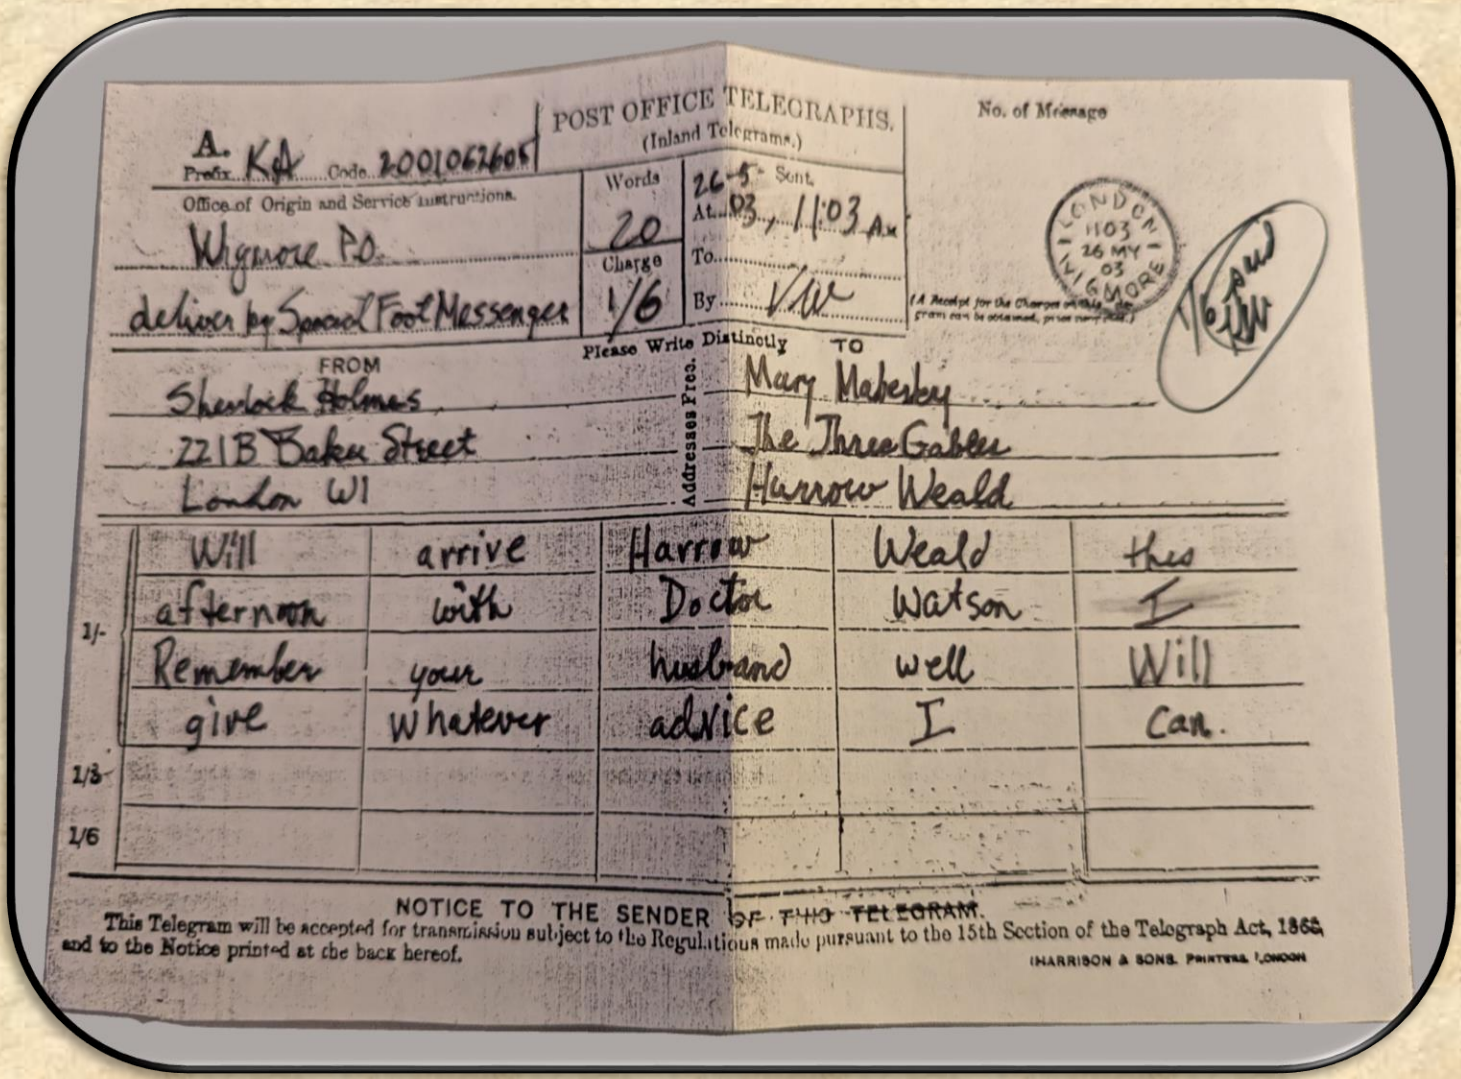 POST OFFICE TELEGRAPHS.
(Inland Telegrams.)
No. of Message
A.
Prefix KA Code 2001062605
Office of Origin and Service Instructions.
Wigmore P.O.
deliver by Special Foot Messenger
Words
20
Charge
1/6
26-5- Sent
At 03, 11:03 AM
To
By VW
LONDON
1103
26 MY
03
WIGMORE
(A Receipt for the Charges on this
gram can be obtained, price
Please Write Distinctly
FROM
Sherlock Holmes
221B Baker Street
London W1
Addresses Free.
TO
Mary Maberley
The Three Gables
Harrow Weald
Will arrive Harrow Weald this
1/- afternoon with Doctor Watson I
Remember your husband well Will
give Whatever advice I Can.
1/3
1/6
NOTICE TO THE SENDER OF THIS TELEGRAM.
This Telegram will be accepted for transmission subject to the Regulations made pursuant to the 15th Section of the Telegraph Act, 1868,
and to the Notice printed at the back hereof.
HARRISON & SONS. PRINTERS, LONDON